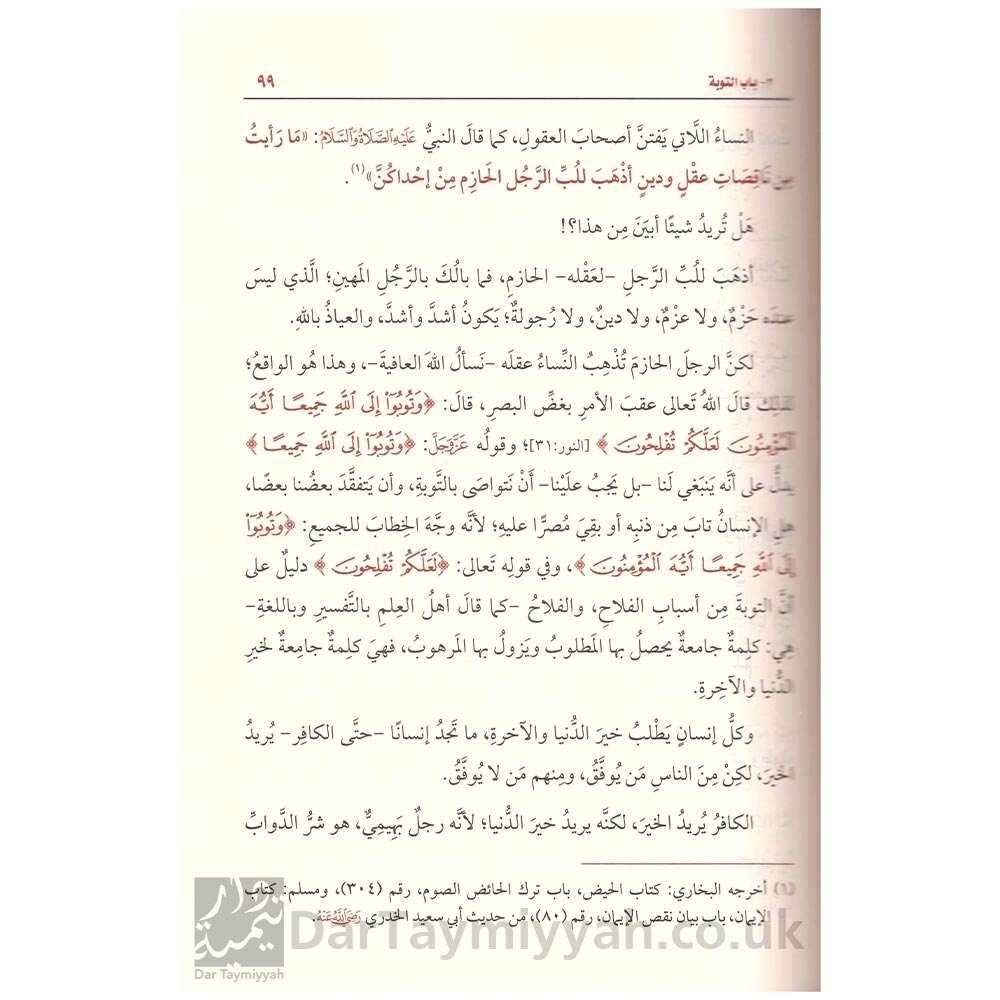 ٢- باب التوبة ٩٩
النساءُ اللَّاتي يَفتنَّ أصحابَ العقولِ، كما قالَ النبيُّ عَلَيْهِ الصَّلَاةُ وَالسَّلَامُ: «مَا رَأيتُ
مِن نَاقِصَاتِ عقْلٍ ودينٍ أذْهَبَ للُبِّ الرَّجُل الحَازِم مِنْ إحْداكُنَّ»(١).
هَلْ تُريدُ شيئًا أبيَنَ مِن هذا؟!
أذهَبَ للُبِّ الرَّجلِ -لعَقْله- الحازمِ، فما بالُكَ بالرَّجُلِ المَهينِ؛ الَّذي ليسَ
عندَه حَزْمٌ، ولا عزْمٌ، ولا دينٌ، ولا رُجولةٌ؛ يَكونُ أشدَّ وأشدَّ، والعياذُ باللهِ.
لكنَّ الرجلَ الحازمَ تُذْهِبُ النِّساءُ عقلَه -نَسألُ اللهَ العافيةَ-، وهذا هُو الواقعُ؛
لذلك قالَ اللهُ تَعالى عقبَ الأمرِ بغضِّ البصرِ، قالَ: ﴿وَتُوبُوٓا۟ إِلَى ٱللَّهِ جَمِيعًا أَيُّهَ
ٱلْمُؤْمِنُونَ لَعَلَّكُمْ تُفْلِحُونَ﴾ [النور:٣١]؛ وقولُه عَزَّوَجَلَّ: ﴿وَتُوبُوٓا۟ إِلَى ٱللَّهِ جَمِيعًا﴾
يدلُّ على أنَّه يَنبَغي لَنا -بل يَجبُ علَيْنا- أَنْ نَتواصَى بالتَّوبةِ، وأن يَتفقَّدَ بعضُنا بعضًا،
هلِ الإنسانُ تابَ مِن ذنبِه أو بقِيَ مُصرًّا عليهِ؛ لأنَّه وجَّهَ الخِطابَ للجميعِ: ﴿وَتُوبُوٓا۟
إِلَى ٱللَّهِ جَمِيعًا أَيُّهَ ٱلْمُؤْمِنُونَ﴾، وفي قولِه تَعالى: ﴿لَعَلَّكُمْ تُفْلِحُونَ﴾ دليلٌ على
أنَّ التوبةَ مِن أسبابِ الفلاحِ، والفلاحُ -كما قالَ أهلُ العِلمِ بالتَّفسيرِ وباللغةِ-
هِي: كلِمةٌ جامعةٌ يحصلُ بها المَطلوبُ ويَزولُ بها المَرهوبُ، فهيَ كلِمةٌ جامِعةٌ لخيرِ
الدُّنيا والآخِرةِ.
وكلُّ إنسانٍ يَطْلبُ خيرَ الدُّنيا والآخرةِ، ما تَجدُ إنسانًا -حتَّى الكافِر- يُريدُ
الخيرَ، لكِنْ مِنَ الناسِ مَن يُوفَّقُ، ومِنهم مَن لا يُوفَّقُ.
الكافرُ يُريدُ الخيرَ، لكنَّه يريدُ خيرَ الدُّنيا؛ لأنَّه رجلٌ بَهِيميٌّ، هو شرُّ الدَّوابِّ
(١) أخرجه البخاري: كتاب الحيض، باب ترك الحائض الصوم، رقم (٣٠٤)، ومسلم: كتاب
الإيمان، باب بيان نقص الإيمان، رقم (٨٠)، من حديث أبي سعيد الخدري رَضِيَ اللَّهُ عَنْهُ.
دار تيمية
Dar Taymiyyah
DarTaymiyyah.co.uk